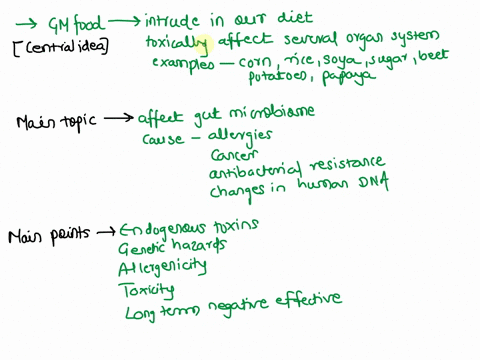 → GM food → intrude in our diet
[central idea] toxically affect several organ system
examples — corn, rice, soya, sugar, beet
potatoes, papaya
Main topic → affect gut microbiome
cause — allergies
cancer
antibacterial resistance
changes in human DNA
Main points → Endogenous toxins
Genetic hazards
Allergenicity
Toxicity
Long term negative effective